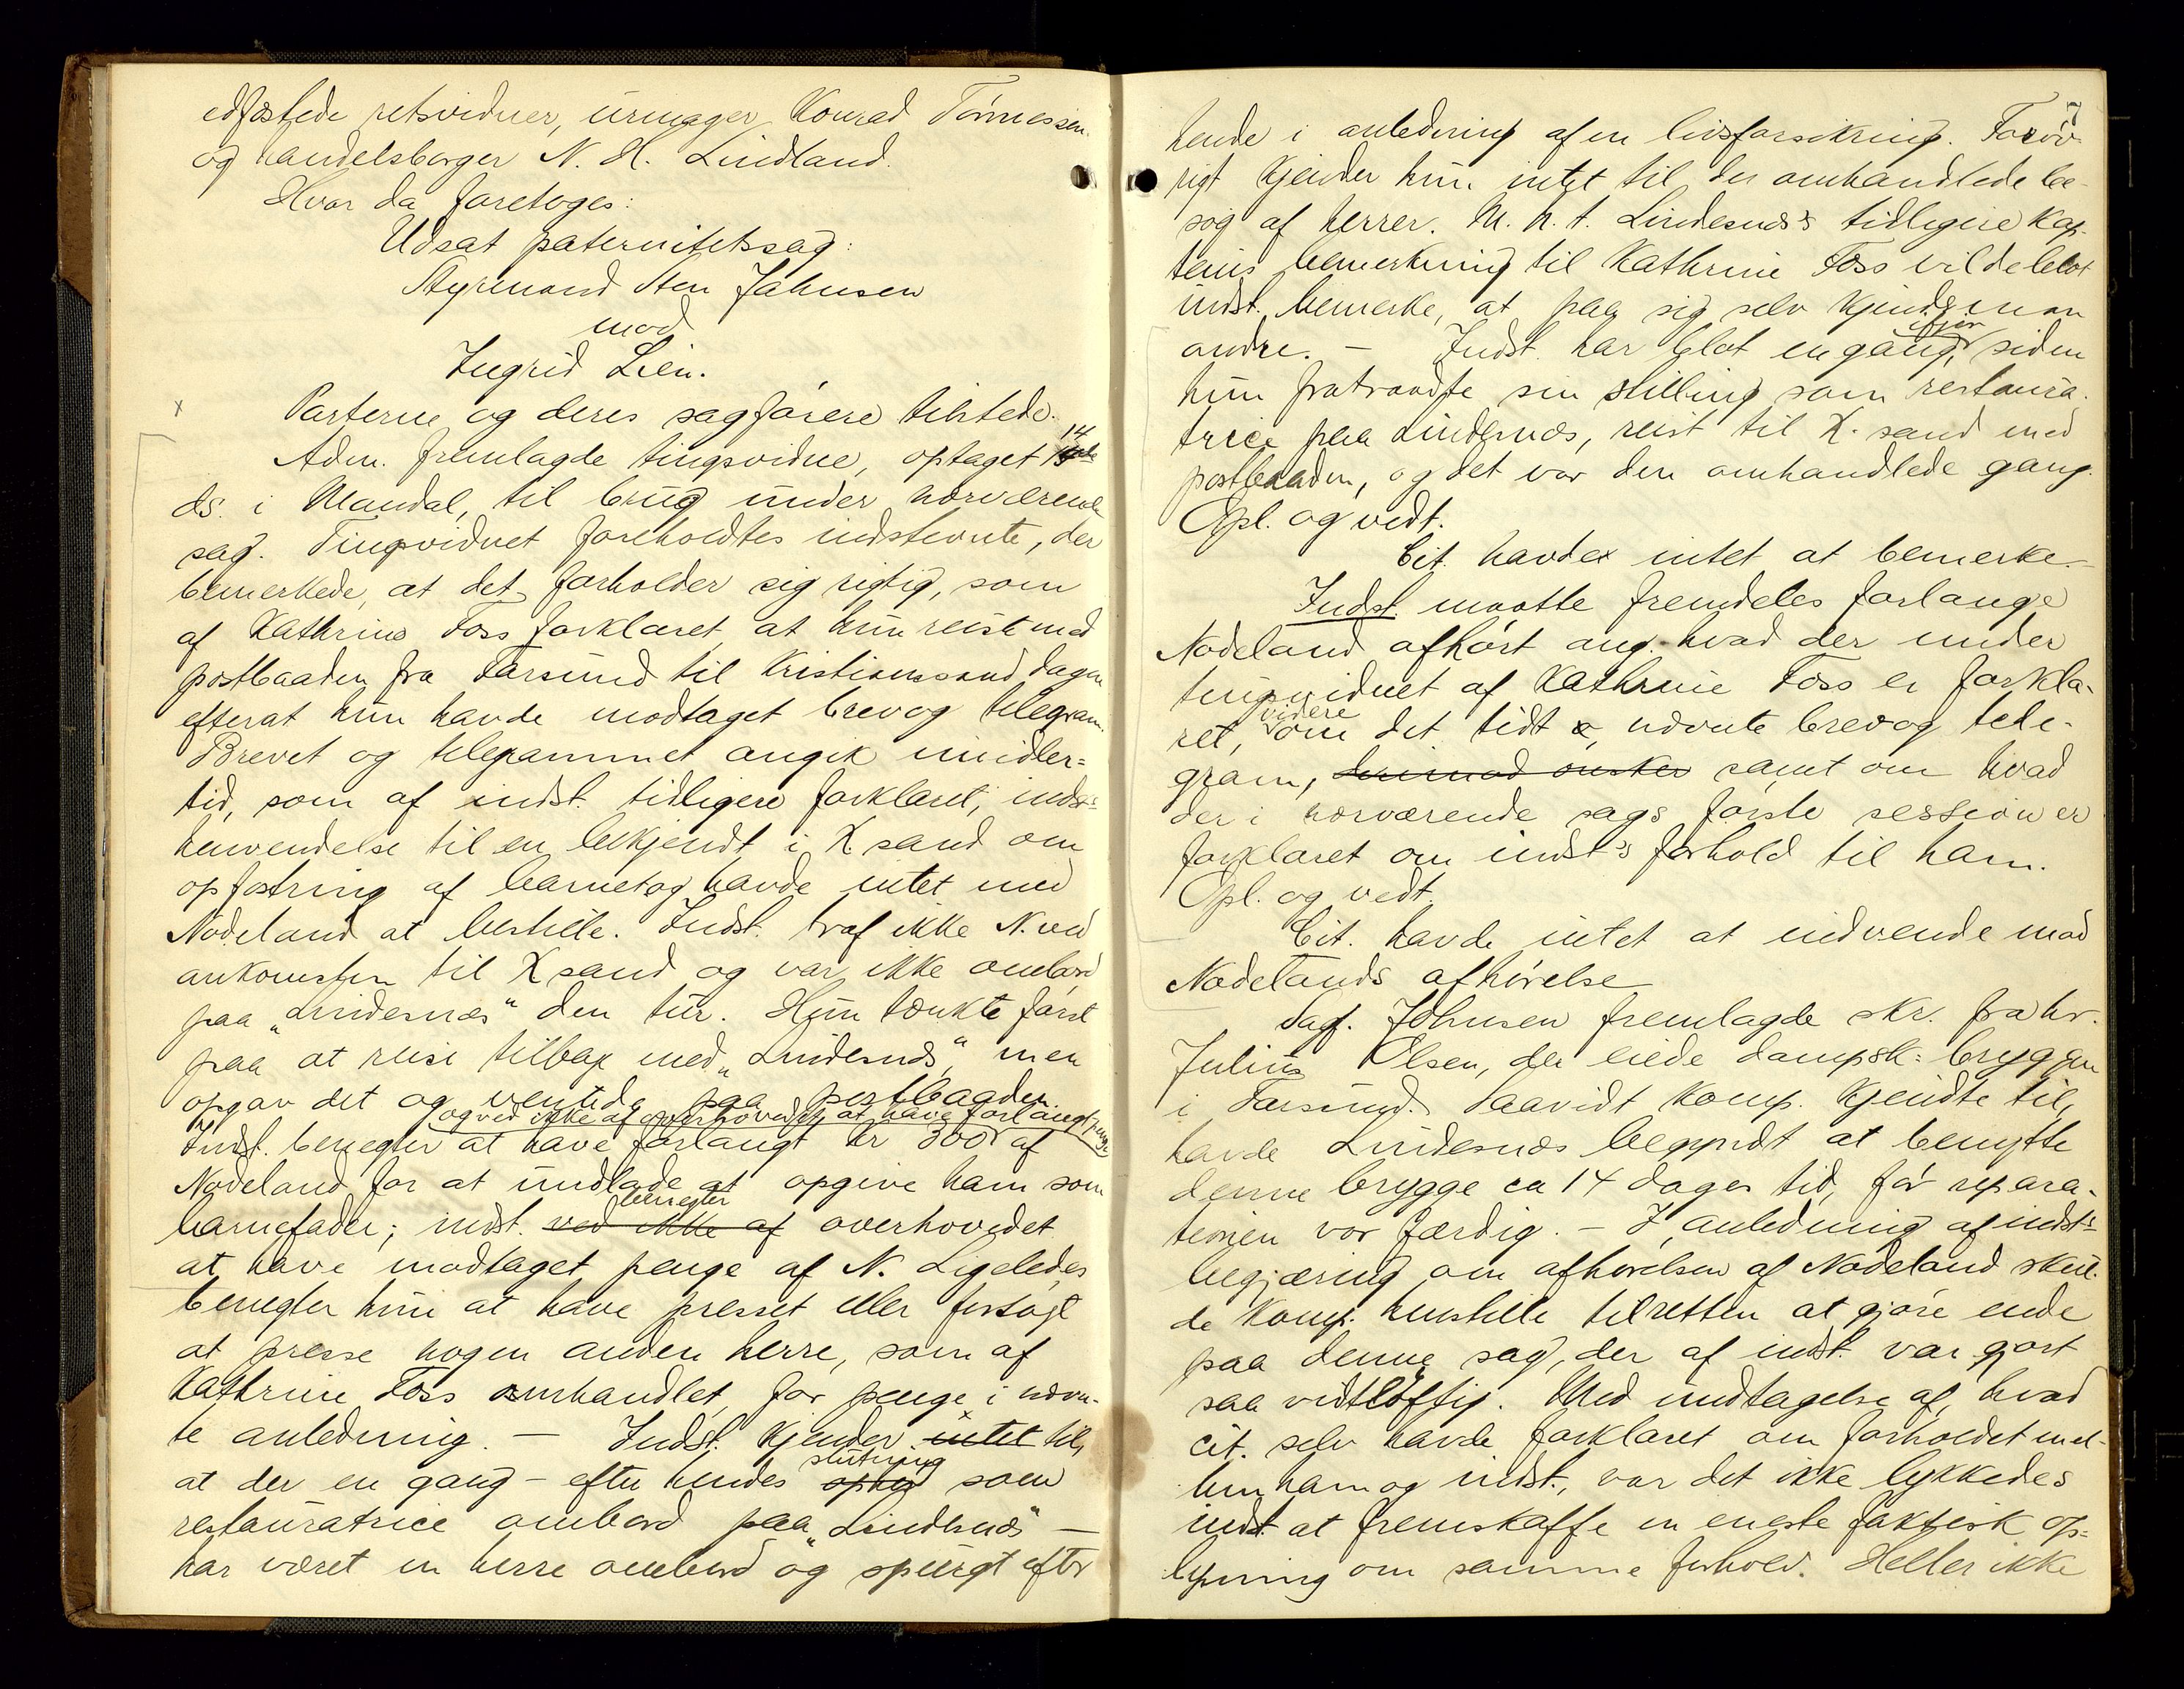 edfæstede retsvidner, urmager Konrad Tønnessen
og handelsborger N. H. Lindland.
Hvor da foretoges:
Udsat paternitetssag:
Styrmand Sten Jahnsen
mod
Ingrid Lien.
x
Parterne og deres sagførere tilstede.
14
Adm. fremlagde tingsvidne, optaget 15de
ds. i Mandal, til brug under nærværende
sag. Tingsvidnet foreholdtes indstevnte, der
bemerkede, at det forholder sig rigtig, som
af Kathrine Foss forklaret, at hun reiste med
postbaaden fra Farsund til Kristianssand dagen
efterat hun havde modtaget brev og telegram.
Brevet og telegrammet angik imidler=
tid, som af indst. tidligere forklaret, indst.s
henvendelse til en bekjendt i Xsand om
opfostring af barnet og havde intet med
Nodeland at bestille. Indst. traf ikke N. ved
ankomsten til Xsand og var ikke ombord
paa „Lindesnæs“ den tur. Hun tænkte først
paa at reise tilbage med „Lindesnæs“, men
opgav det og ventede paa postbaaden.
og ved ikke af overhovedet at have forlangt penge
Indst. benegter at have forlangt kr 300 af
Nodeland for at undlade at opgive ham som
benegter
barnefader; indst. ved ikke af overhovedet
at have modtaget penge af N. Ligeledes
benegter hun at have presset eller forsøgt
at presse nogen anden herre, som af
Kathrine Foss omhandlet, for penge i nævn-
te anledning. — Indst. kjender intet til,
slutning
at der en gang – efter hendes ophør som
restauratrice ombord paa „Lindesnæs“ —
har været en herre ombord og spurgt efter
7
hende i anledning af en livsforsikring. Forøv-
rigt kjender hun intet til de omhandlede be-
søg af herrer. M. h. t. Lindesnæs's tidligere kap-
teins bemerkning til Kathrine Foss vilde blot
indst. bemerke, at paa sig selv kjender man
andre. — Indst. har blot en gang, ifjor siden
hun fratraadte sin stilling som restaura-
trice paa Lindesnæs, reist til X.sand med
postbaaden, og det var den omhandlede gang.
Opl. og vedt.
Cit. havde intet at bemerke.
Indst. maatte fremdeles forlange
Nodeland afhørt ang. hvad der under
tingsvidnet af Kathrine Foss er forkla-
videre
ret, om det tidt nævnte brev og tele-
gram, herimod ønsker samt om hvad
der i nærværende sags første session er
forklaret om indst's forhold til ham.
Opl. og vedt.
Cit. havde intet at indvende mod
Nodelands afhørelse
Sagf. Johnsen fremlagde skr. fra hr.
Julius Olsen, der eiede dampsk: bryggen
i Farsund. Saavidt komp. kjendte til,
havde Lindesnæs begyndt at benytte
denne brygge ca 14 dages tid, før repara-
tionen var færdig. — I anledning af indst.s
begjæring om afhørelsen af Nodeland skul-
de komp. henstille til retten at gjøre ende
paa denne sag, der af indst. var gjort
saa vidtløftig. Med undtagelse af, hvad
cit. selv havde forklaret om forholdet mel-
lem ham og indst., var det ikke lykkedes
indst at fremskaffe en eneste faktisk op-
lysning om samme forhold. Heller ikke